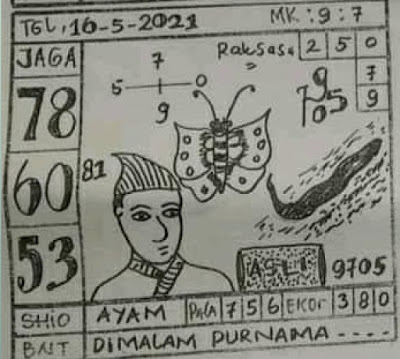 TGL, 16-5-2021 MK : 9 : 7
JAGA
Raksasa 2 5 0
7
9
78
7
5 0
9
9
7 5
6
60
81
53
ASLI
9705
SHIO AYAM PALA 7 5 6 EKOR 3 8 0
BNT DIMALAM PURNAMA ----